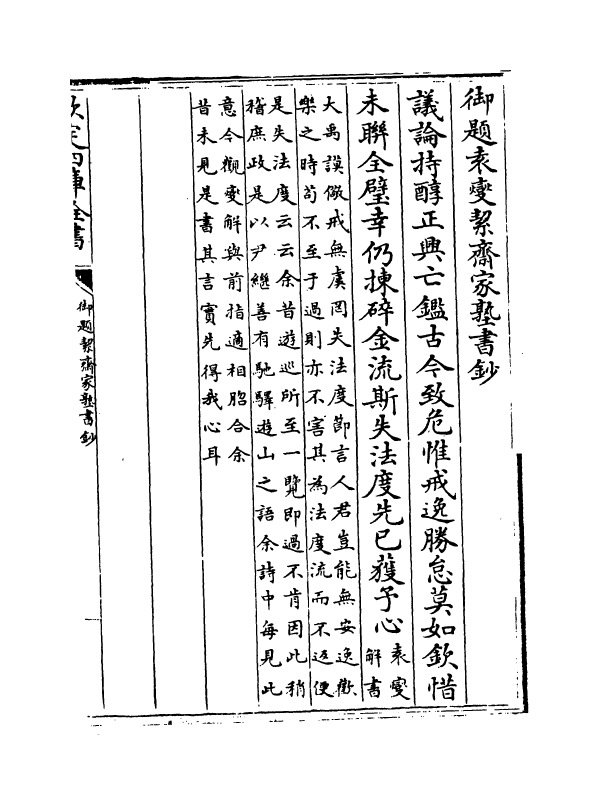 御題袁燮絜齋家塾書鈔
議論持醇正興亡鑑古今致危惟戒逸勝怠莫如欽惜
未聯全璧幸仍揀碎金流斯失法度先已獲予心袁燮
解書
大禹謨儆戒無虞罔失法度節言人君豈能無安逸歡
樂之時苟不至于過則亦不害其為法度流而不返便
是失法度云云余昔遊巡所至一覽即過不肯因此稍
稽庶政是以尹繼善有馳驛遊山之語余詩中每見此
意今觀燮解與前指適相脗合余
昔未見是書其言實先得我心耳
欽定四庫全書
御題絜齋家塾書鈔